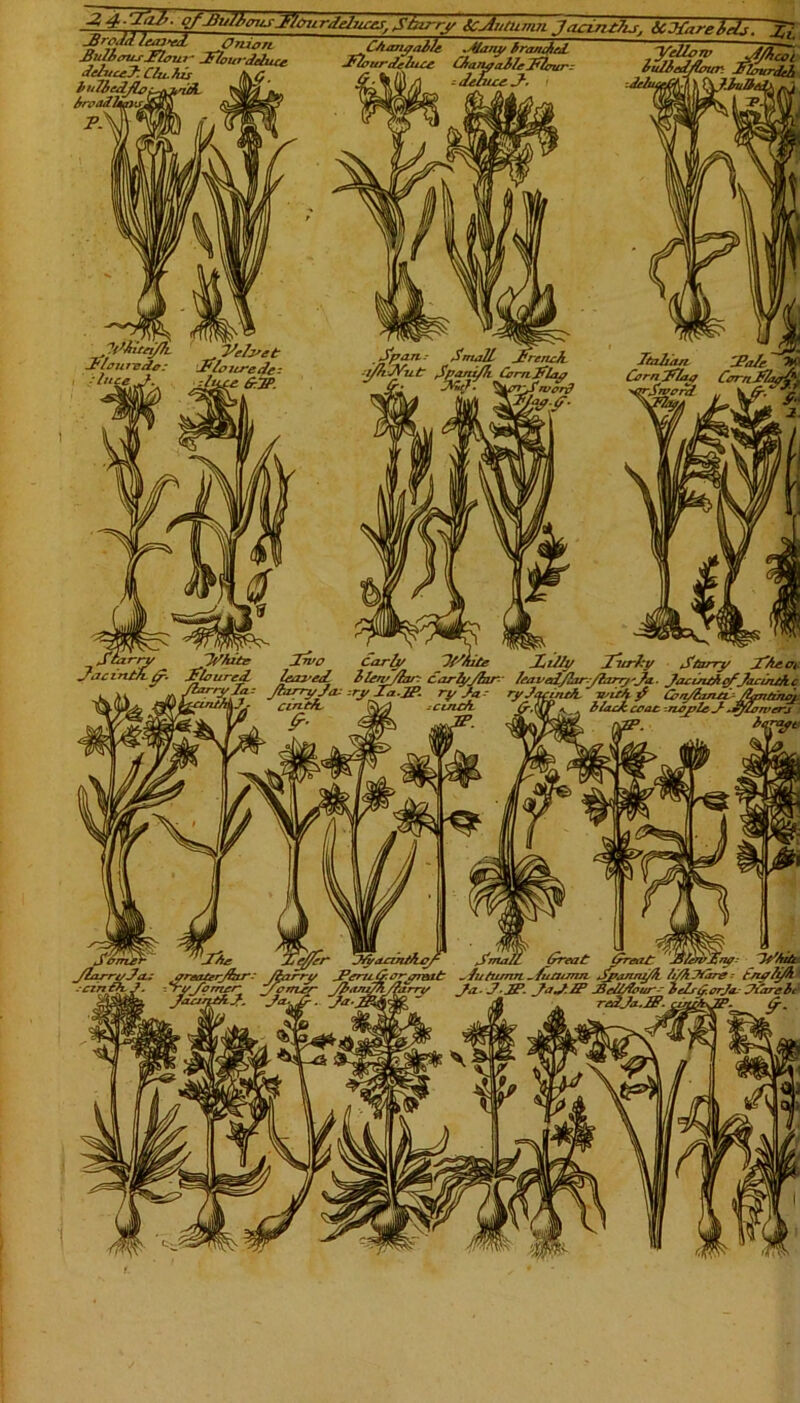 24. Tab. of Bulbous Flourdeluces, Starry & Autumn Jacinths, & Harebels. Li,
Broad leaved Onion
Bulbous Flour Flour deluce
deluce J. Clu. his G.
bulbed flo
broad
P.
Changable Many branched
Flour deluce Changable Flour-
G. -deluce J.
Yellow
bulbed flour- Flourdel
P.
Whiteish Velvet
Flourede: Flourede:
:luce J. :luce G. P.
Span- Small French
:ish Nut Spanish Corn Flag
G. Nut J. or Sword
Flag. G.
Italian Pale
Corn Flag Corn Flag
or Sword G.
Flag
Starry White Two early White Lilly Turky Starry The
Jacinth. G. Floured leaved blew star- early star- leaved star- starry Ja. Jacinth of Jacinth
starry Ja: starry Ja: :ry Ia. P. ry Ja- ry Jacinth with ye Constanti-
cinth J. cinth :cinth G. black coat :nople J. flowers
G. P. P.
Somer The Lesser Hyacinth of Small Great Great Blew Eng- White
starry Ja: greater star- starry Peru G. or great Autumn Autumn Spannish lish Hare- English
:cinth J. :ry somer somer Spanish starry Ja. J. P. Ja J. P Bell flour- bels G. or Ja- Hare be
Jacinth J. Ja. G. Ja. P. red Ja. P. cinth P. G.